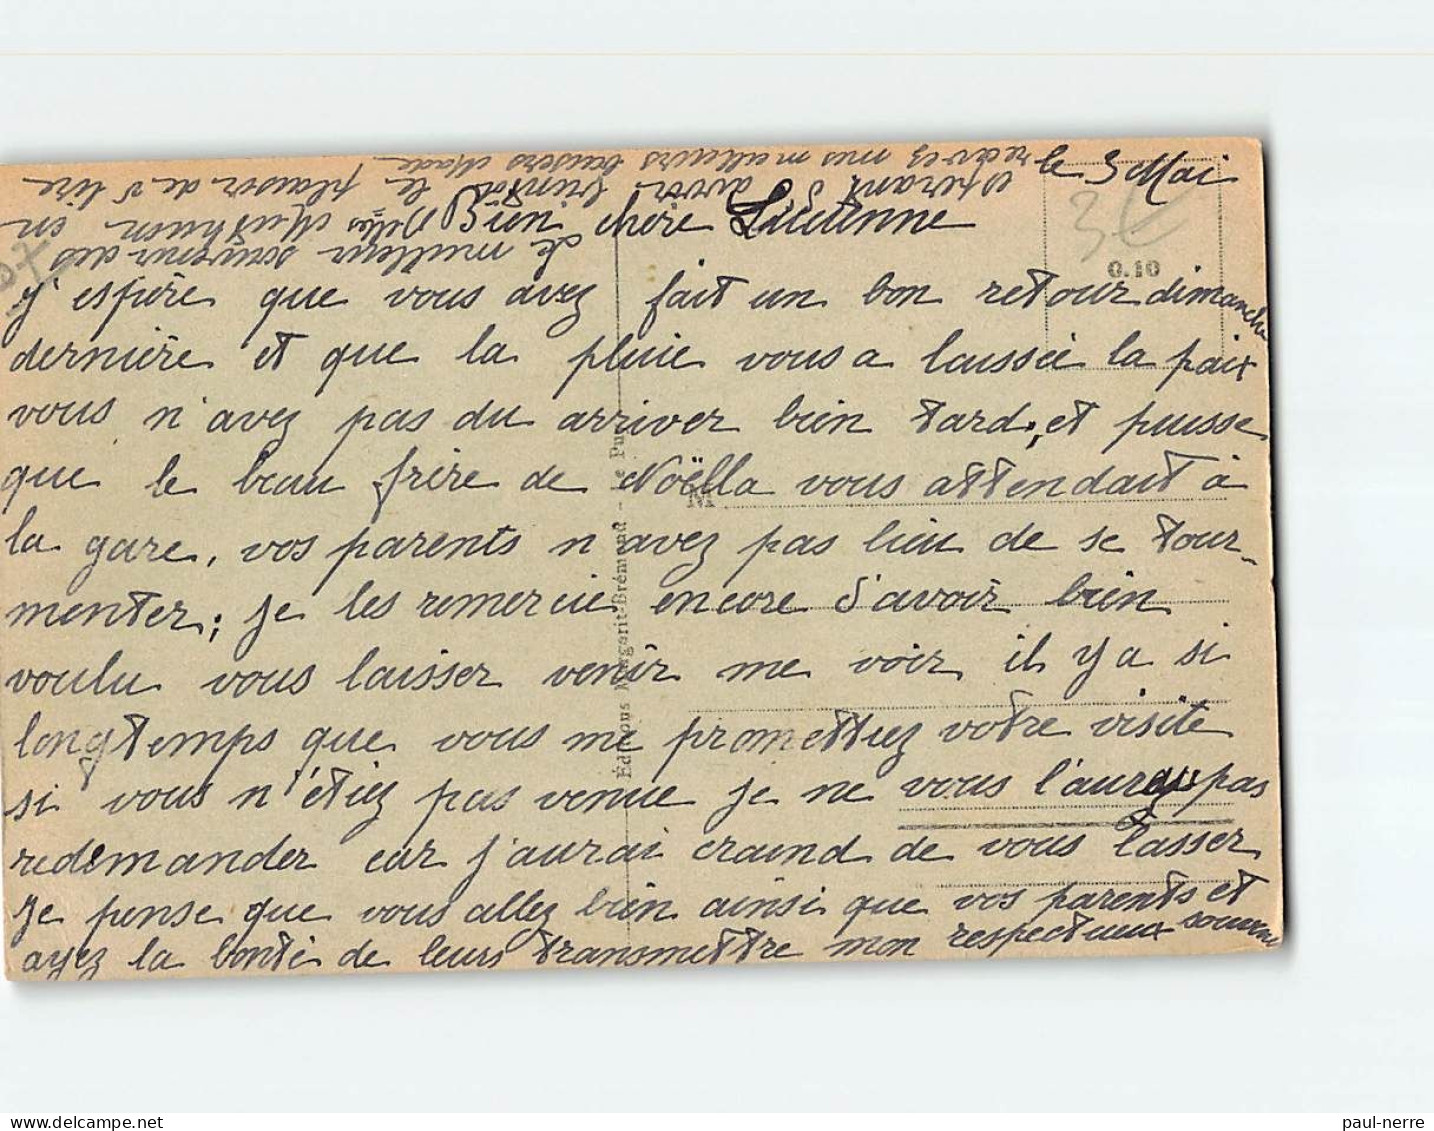 le 3 Mai
Bien chère Lucienne
j'espère que vous avez fait un bon retour dimanche
dernière et que la pluie vous a laissée la paix
vous n'avez pas du arriver bien tard, et puisse
que le beau frère de Noëlla vous attendait à
la gare, vos parents n'avez pas lieu de se tour-
menter; je les remercie encore d'avoir bien
voulu vous laisser venir me voir il y a si
longtemps que vous me promettiez votre visite
si vous n'étiez pas venue je ne vous l'aurez pas
redemander car j'aurai craind de vous lasser
Je pense que vous allez bien ainsi que vos parents et
ayez la bonté de leurs transmettre mon respectueux souvenir
Le meilleur souvenir des
Delles en
espérant d'avoir bientôt le plaisir de v lire
recevez mes meilleurs baisers Made
3€
0.10
M
Éditions Margerit-Brémond - Le Puy
07
paul-nerre